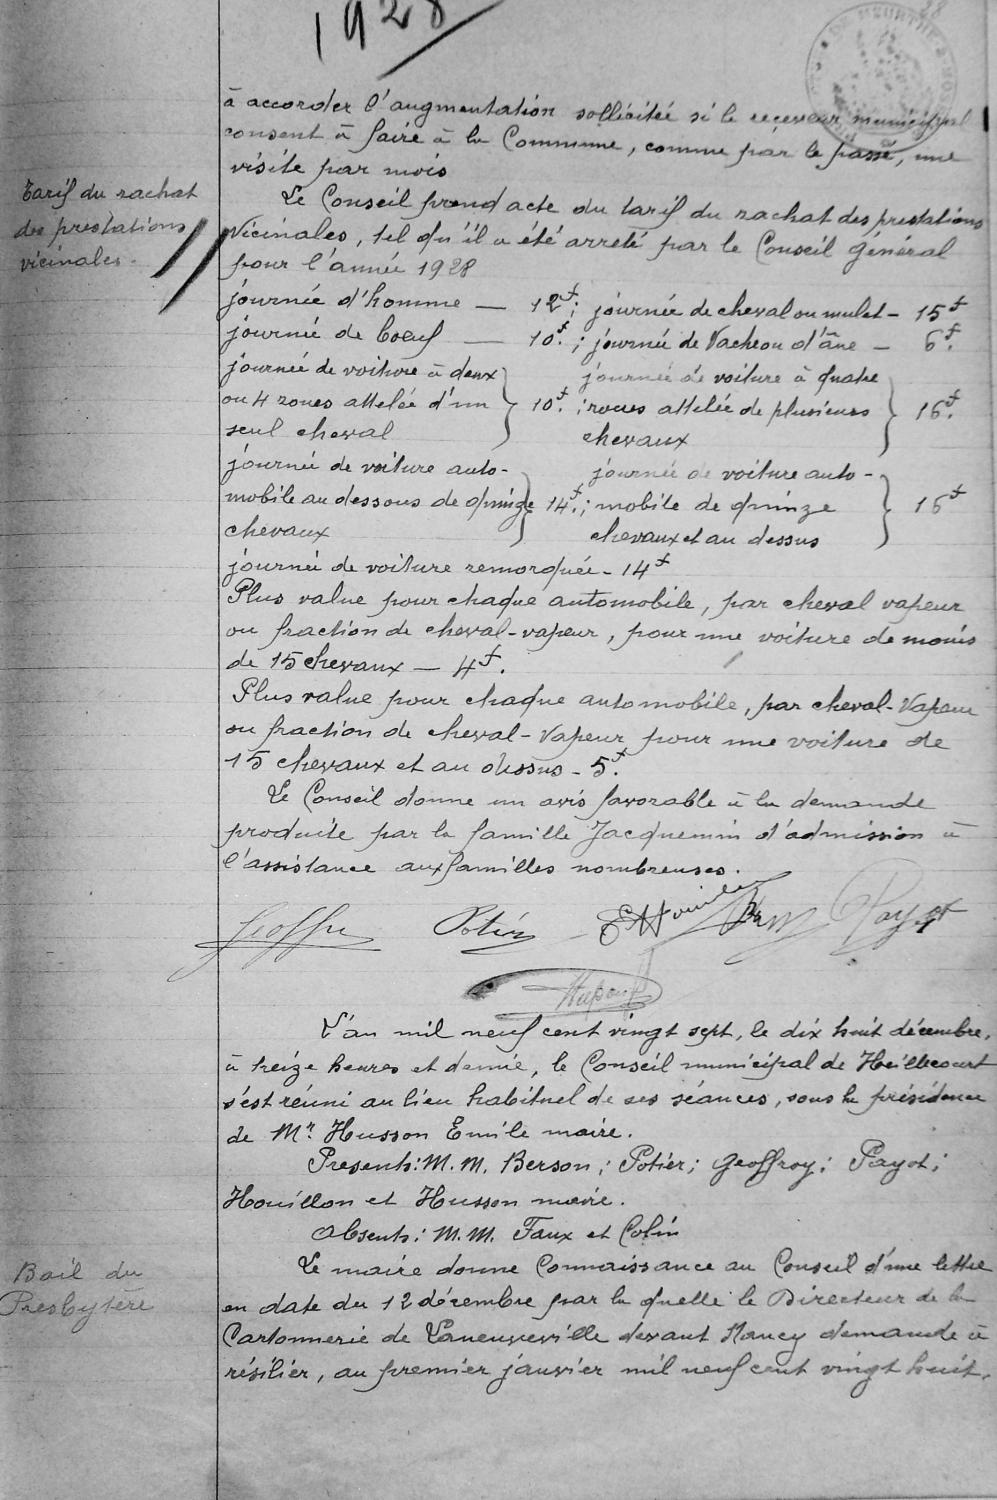 1928
à accorder l'augmentation sollicitée si le receveur municipal
consent à faire à la Commune, comme par le passé, une
visite par mois
Tarif du rachat
des prestations
vicinales.
Le Conseil prend acte du tarif du rachat des prestations
Vicinales, tel qu'il a été arreté par le Conseil Général
pour l'année 1928
journée d'homme — 12f; journée de cheval ou mulet - 15f
journée de boeuf — 10f.; journée de Vache ou d'âne — 6f.
journée de voiture à deux journée de voiture à quatre
ou 4 roues attelée d'un } 10f.; roues attelée de plusieurs } 16f.
seul cheval chevaux
journée de voiture auto- journée de voiture auto-
mobile au dessous de quinze } 14f.; mobile de quinze } 16f
chevaux chevaux et au dessus
journée de voiture remorquée - 14f
Plus value pour chaque automobile, par cheval vapeur
ou fraction de cheval-vapeur, pour une voiture de moins
de 15 chevaux — 4f.
Plus value pour chaque automobile, par cheval-Vapeur
ou fraction de cheval-Vapeur pour une voiture de
15 chevaux et au dessus - 5f.
Le Conseil donne un avis favorable à la demande
produite par la famille Jacquemin d'admission à
l'assistance aux familles nombreuses.
Geoffroy Potier EHouillon Payot
L'an mil neuf cent vingt sept, le dix huit décembre,
à treize heures et demie, le Conseil municipal de Heillecourt
s'est réuni au lieu habituel de ses séances, sous la présidence
de Mr. Husson Emile maire.
Presents: M.M. Berson; Potier; Geoffroy; Payot;
Houillon et Husson maire.
Absents: M.M. Faux et Colin
Bail du
Presbytère
Le maire donne Connaissance au Conseil d'une lettre
en date du 12 décembre par la quelle le Directeur de la
Cartonnerie de Laneuveville devant Nancy demande à
résilier, au premier janvier mil neuf cent vingt huit,